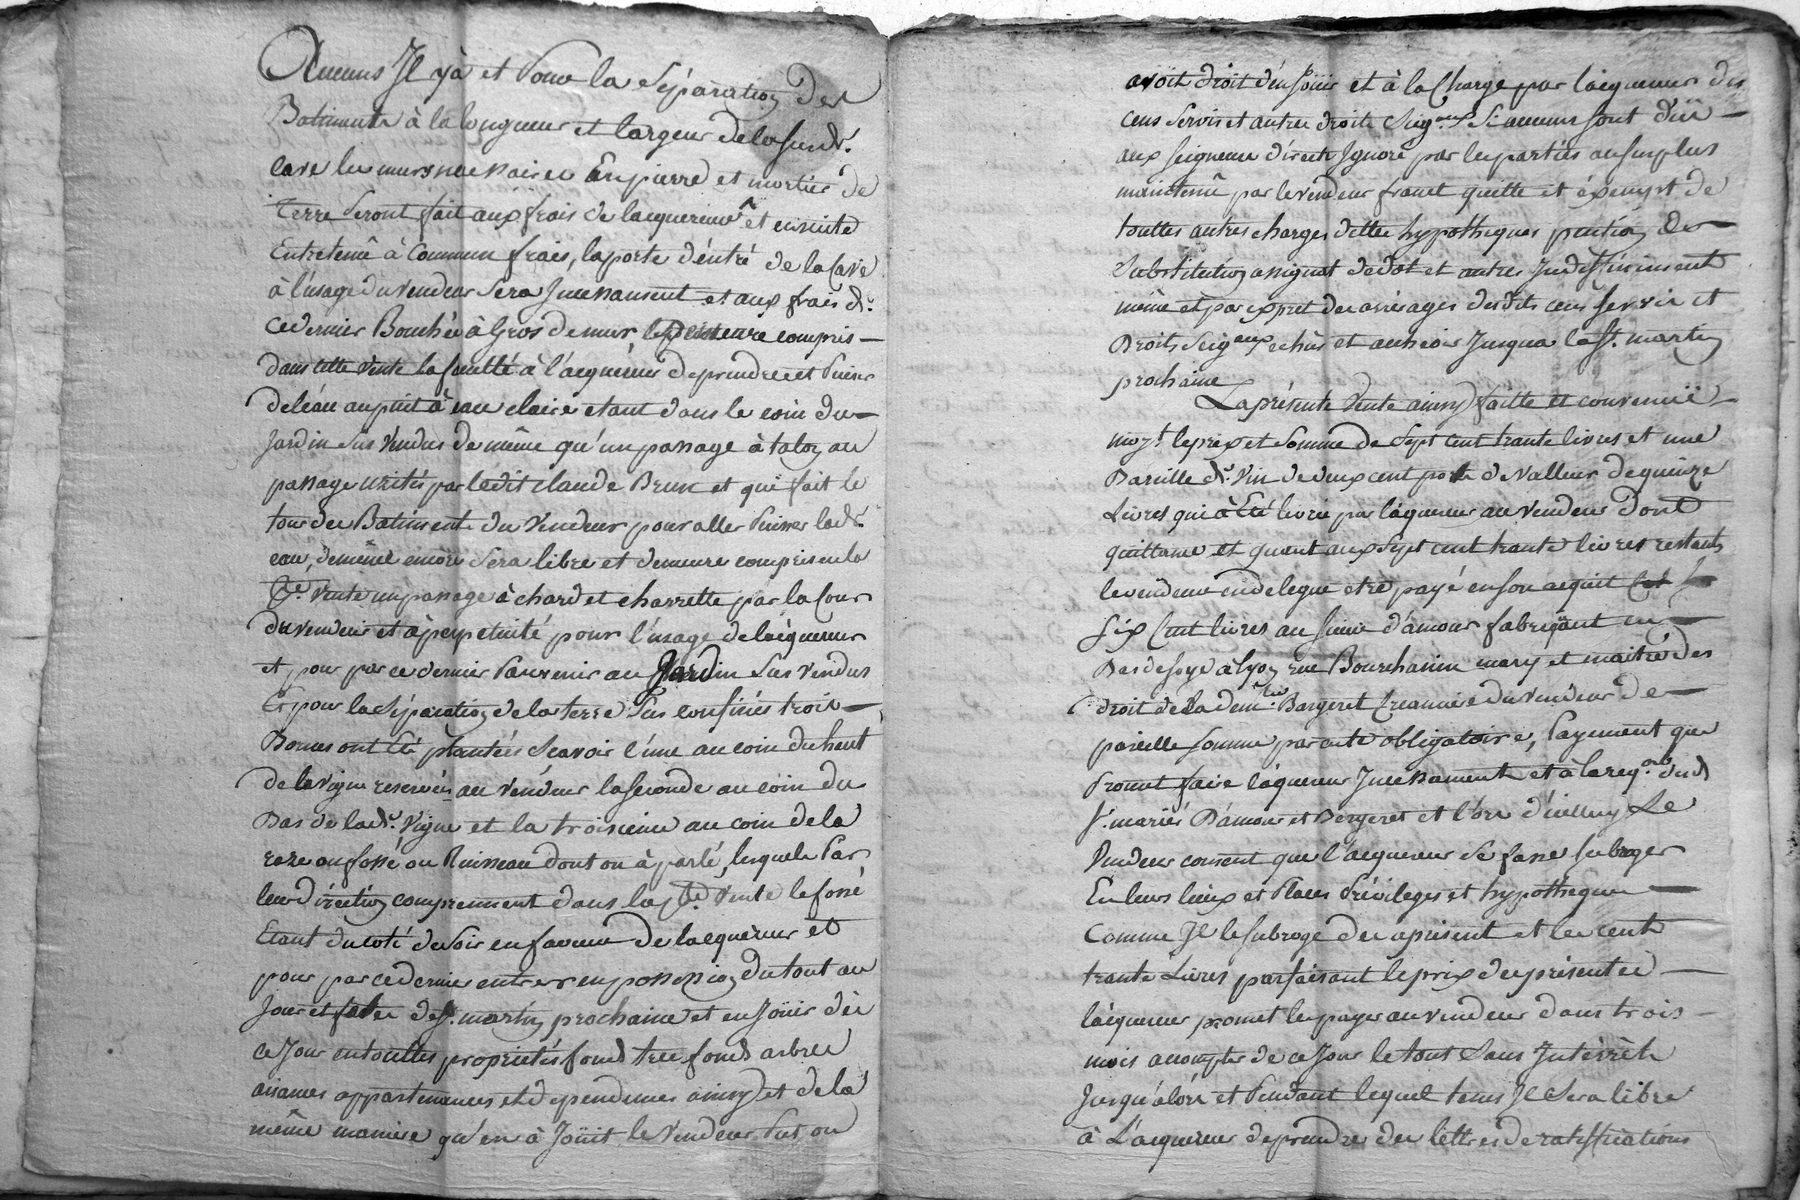 Aucuns Jl ÿ à et Pour la Séparation des
Batiments à la longueur et largeur de la susd.e
cave les murs necessaires En pierre et mortier de
Terre Seront fait aux frais de lacquereur et ensuitte
Entretenû à Commun frais, la porte d'éntré de la Cave
à l'usage du vendeur Sera Jncessament et aux frais de
Ce dernier Bouchée à Gros de mur, compris
dans cette vente la faculté à l'acquéreur de prendre et Puiser
de léau au puit à eau claire etant dans le coin du
Jardin Sus vendus de même qu'un passage à talon au
passage usités par lédit claude Brun et qui fait le
tour des Batiments du vendeur pour aller Puisser lad.e
eau, de même encore Sera libre et demeure compris en la
p.te vente un passage à chard et charrette par la Cour
du vendeur et à perpetuité pour l'usage de lacquereur
et pour par ce dernier Parvenir au Jardin Sus vendus
Et pour la Séparation de la terre Sus confinés trois
Bornes ont été plantées Scavoir l'une au coin du haut
de la vigne reservée au vendeur la seconde au coin du
Bas de lad.e Vigne et la troisieme au coin de la
raze ou fossé ou Ruisseau dont on à parlé, lesquels Par
leur diréction comprennent dans la p.te vente le fossé
Etant du coté de Soir en faveur de lacquereur et
pour par ce dernier entrer en possession du tout au
Jour et fette de St. martin prochaine et en Joüir dès
ce Jour en touttes proprietés fond tres fond arbres
aisances appartenances et dependances ainsy et de la
même maniere qu'en à Joüit le Vendeur Put ou
avoit droit d'én Joüir et à la Charge par l'acquereur des
cens Servis et autres droits Seig.aux Si aucuns sont dûs
aux Seigneurs d'irects Jgnoré par les parties au surplus
maintenû par le vendeur franct quitte et éxempt de
touttes autres charges dettes hypotheques pention de
Substitution assignat de dot et autres Jndéffiniment
même et par exprét des arrérages desdits cens servis et
Droits Seigaux echûs et Jusqua la St. martin
prochaine
La présente Vente ainsy faitte et convenuë
moy.t le prix et Somme de Sept cent trante livres et une
Bareille de Vin de deux cent pots de valleur de quinze
Livres qui à Eté livrée par l'acquereur au Vendeur Dont
quittance et quant aux Sept cent trante livres restants
le vendeur en delegue etre payé en son acquit
Six Cent livres au Sieur d'amour fabriquant en
Bas de Soye à Lyon rue Bourchanin mary et maitre des
droit de la dem.lle Bergeret Creanciere du Vendeur de
pareille Somme par acte obligatoire, Payement que
Promet faire l'acquereur Jncessament et à la req.on desd
S.r mariés D'amour et Bergeret et l'ors d'icelluy Le
Vendeur consent que l'acquereur Se fasse Subroger
En leurs lieux et Places Priviléges et hypotheques
Comme Jl le subroge des aprésent et les cents
trante Livres parfaisant le prix des présentes
l'acquereur promet les payer au vendeur dans trois
mois a compter de ce Jour le tout Sans Jntérrêts
Jusqu'alors et Pendant lequel tems Jl Sera libre
à L'acquereur de prendre des lettres de ratiffications